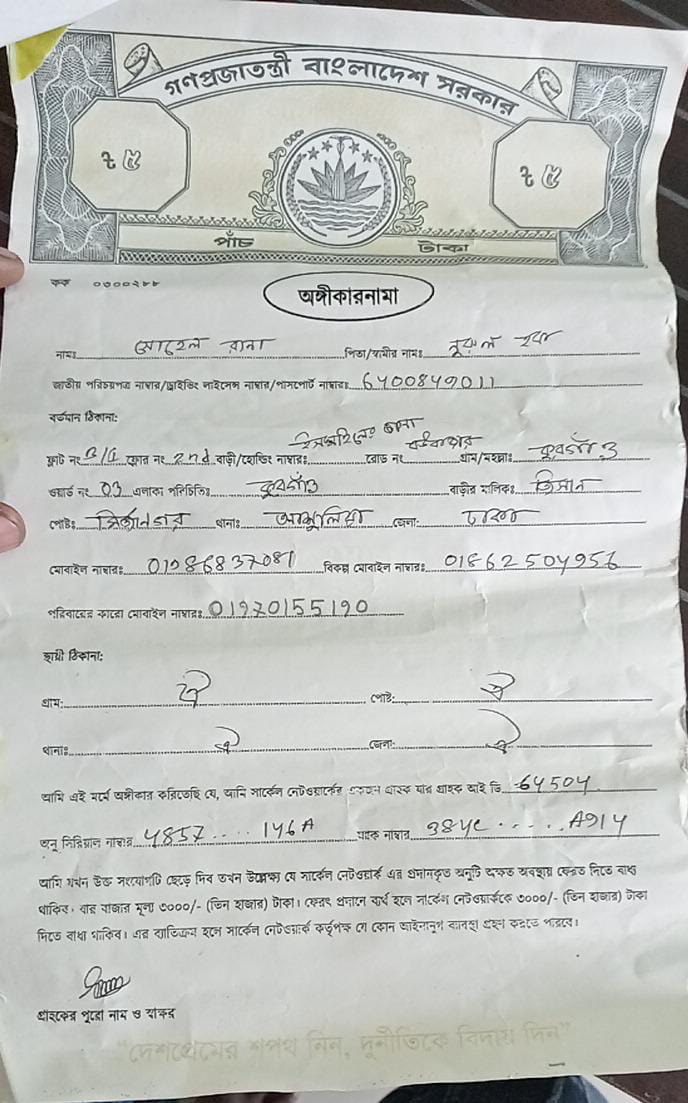 গণপ্রজাতন্ত্রী বাংলাদেশ সরকার
৳ ৫ ৳ ৫
পাঁচ টাকা
কক ০৩০০২৮৮
অঙ্গীকারনামা
নামঃ সোহেল রানা পিতা/স্বামীর নামঃ নুরুল হক
জাতীয় পরিচয়পত্র নাম্বার/ড্রাইভিং লাইসেন্স নাম্বার/পাসপোর্ট নাম্বারঃ 6400849011
বর্তমান ঠিকানা:
ফ্লাট নং ফ্লোর নং 2nd বাড়ী/হোল্ডিং নাম্বারঃ রোড নং গ্রাম/মহল্লাঃ
ওয়ার্ড নং 03 এলাকা পরিচিতিঃ বাড়ীর মালিকঃ
পোষ্টঃ থানাঃ আশুলিয়া জেলা: ঢাকা
মোবাইল নাম্বারঃ 01986837081 বিকল্প মোবাইল নাম্বারঃ 01862504956
পরিবারের কারো মোবাইল নাম্বারঃ 01920155190
স্থায়ী ঠিকানা:
গ্রাম: ঐ পোষ্ট: ঐ
থানাঃ ঐ জেলা: ঐ
আমি এই মর্মে অঙ্গীকার করিতেছি যে, আমি সার্কেল নেটওয়ার্কের একজন গ্রাহক যার গ্রাহক আই ডি 64504
অনু সিরিয়াল নাম্বার 4857.... 146A ম্যাক নাম্বার 384C...... A914
আমি যখন উক্ত সংযোগটি ছেড়ে দিব তখন উল্লেখ্য যে সার্কেল নেটওয়ার্ক এর প্রদানকৃত অনুটি অক্ষত অবস্থায় ফেরত দিতে বাধ্য
থাকিব। যার বাজার মূল্য ৩০০০/- (তিন হাজার) টাকা। ফেরৎ প্রদানে ব্যর্থ হলে সার্কেল নেটওয়ার্ককে ৩০০০/- (তিন হাজার) টাকা
দিতে বাধ্য থাকিব। এর ব্যতিক্রম হলে সার্কেল নেটওয়ার্ক কর্তৃপক্ষ যে কোন আইনানুগ ব্যবস্থা গ্রহন করতে পারবে।
গ্রাহকের পুরো নাম ও স্বাক্ষর
"দেশপ্রেমের শপথ নিন, দুর্নীতিকে বিদায় দিন"